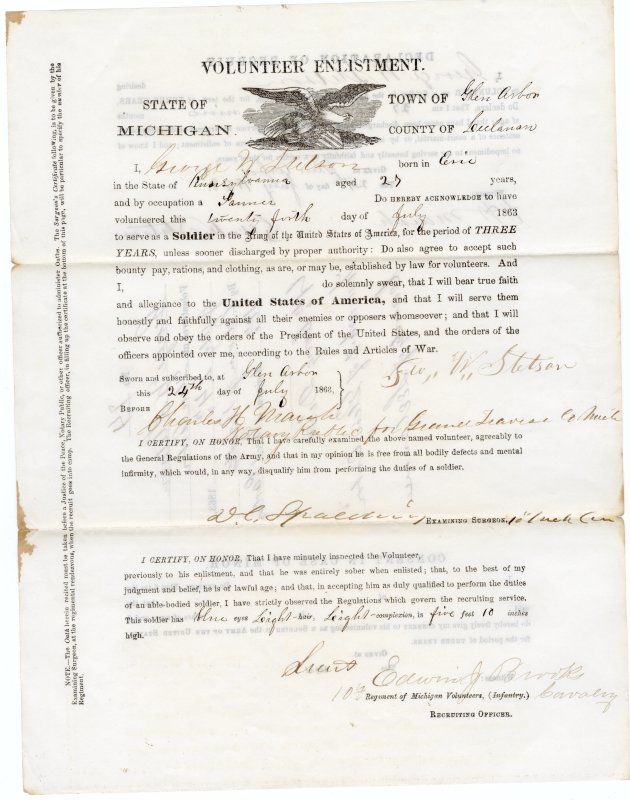 VOLUNTEER ENLISTMENT.
STATE OF
MICHIGAN.
TOWN OF Glen Arbor
COUNTY OF Leelanau
I, George W. Stetson born in Erie
in the State of Pennsylvania aged 27 years,
and by occupation a Do HEREBY ACKNOWLEDGE to have
volunteered this twenty forth day of July 1863
to serve as a Soldier in the Army of the United States of America, for the period of THREE
YEARS, unless sooner discharged by proper authority: Do also agree to accept such
bounty pay, rations, and clothing, as are, or may be, established by law for volunteers. And
I, do solemnly swear, that I will bear true faith
and allegiance to the United States of America, and that I will serve them
honestly and faithfully against all their enemies or opposers whomsoever; and that I will
observe and obey the orders of the President of the United States, and the orders of the
officers appointed over me, according to the Rules and Articles of War.
Sworn and subscribed to, at Glen Arbor
this 24th day of July 1863,
Geo. W. Stetson
BEFORE Charles H. Marsh
Notary Public for Grand Traverse Co Mich
I CERTIFY, ON HONOR, That I have carefully examined the above named volunteer, agreeably to
the General Regulations of the Army, and that in my opinion he is free from all bodily defects and mental
infirmity, which would, in any way, disqualify him from performing the duties of a soldier.
D. C. Spalding EXAMINING SURGEON. 10 Mich Cav
I CERTIFY, ON HONOR, That I have minutely inspected the Volunteer,
previously to his enlistment, and that he was entirely sober when enlisted; that, to the best of my
judgment and belief, he is of lawful age; and that, in accepting him as duly qualified to perform the duties
of an able-bodied soldier, I have strictly observed the Regulations which govern the recruiting service.
This soldier has blue eyes Light hair, Light complexion, is five feet 10 inches
high.
Lieut Edwin J. Brooks
10th Regiment of Michigan Volunteers, (Infantry,) Cavalry
RECRUITING OFFICER.
NOTE.—The Oath herein recited must be taken before a Justice of the Peace, Notary Public, or other officer authorized to administer Oaths. The Surgeon's Certificate following, is to be given by the
Examining Surgeon, at the regimental rendezvous, when the recruit goes into camp. The Recruiting officer, in filling up the certificate at the bottom of this page, will be particular to specify the number of his
Regiment.